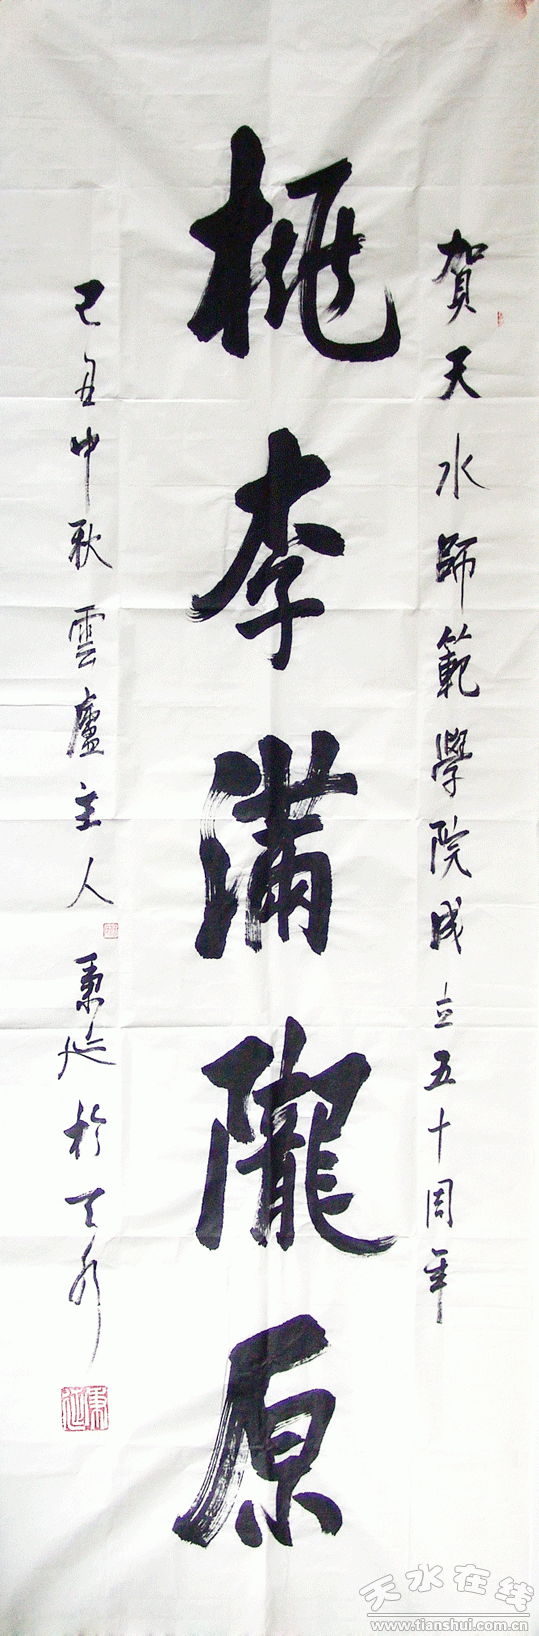 賀天水師範學院成立五十周年
桃李满隴原
己丑中秋雲廬主人秉延於天水
天水在线
www.tianshui.com.cn